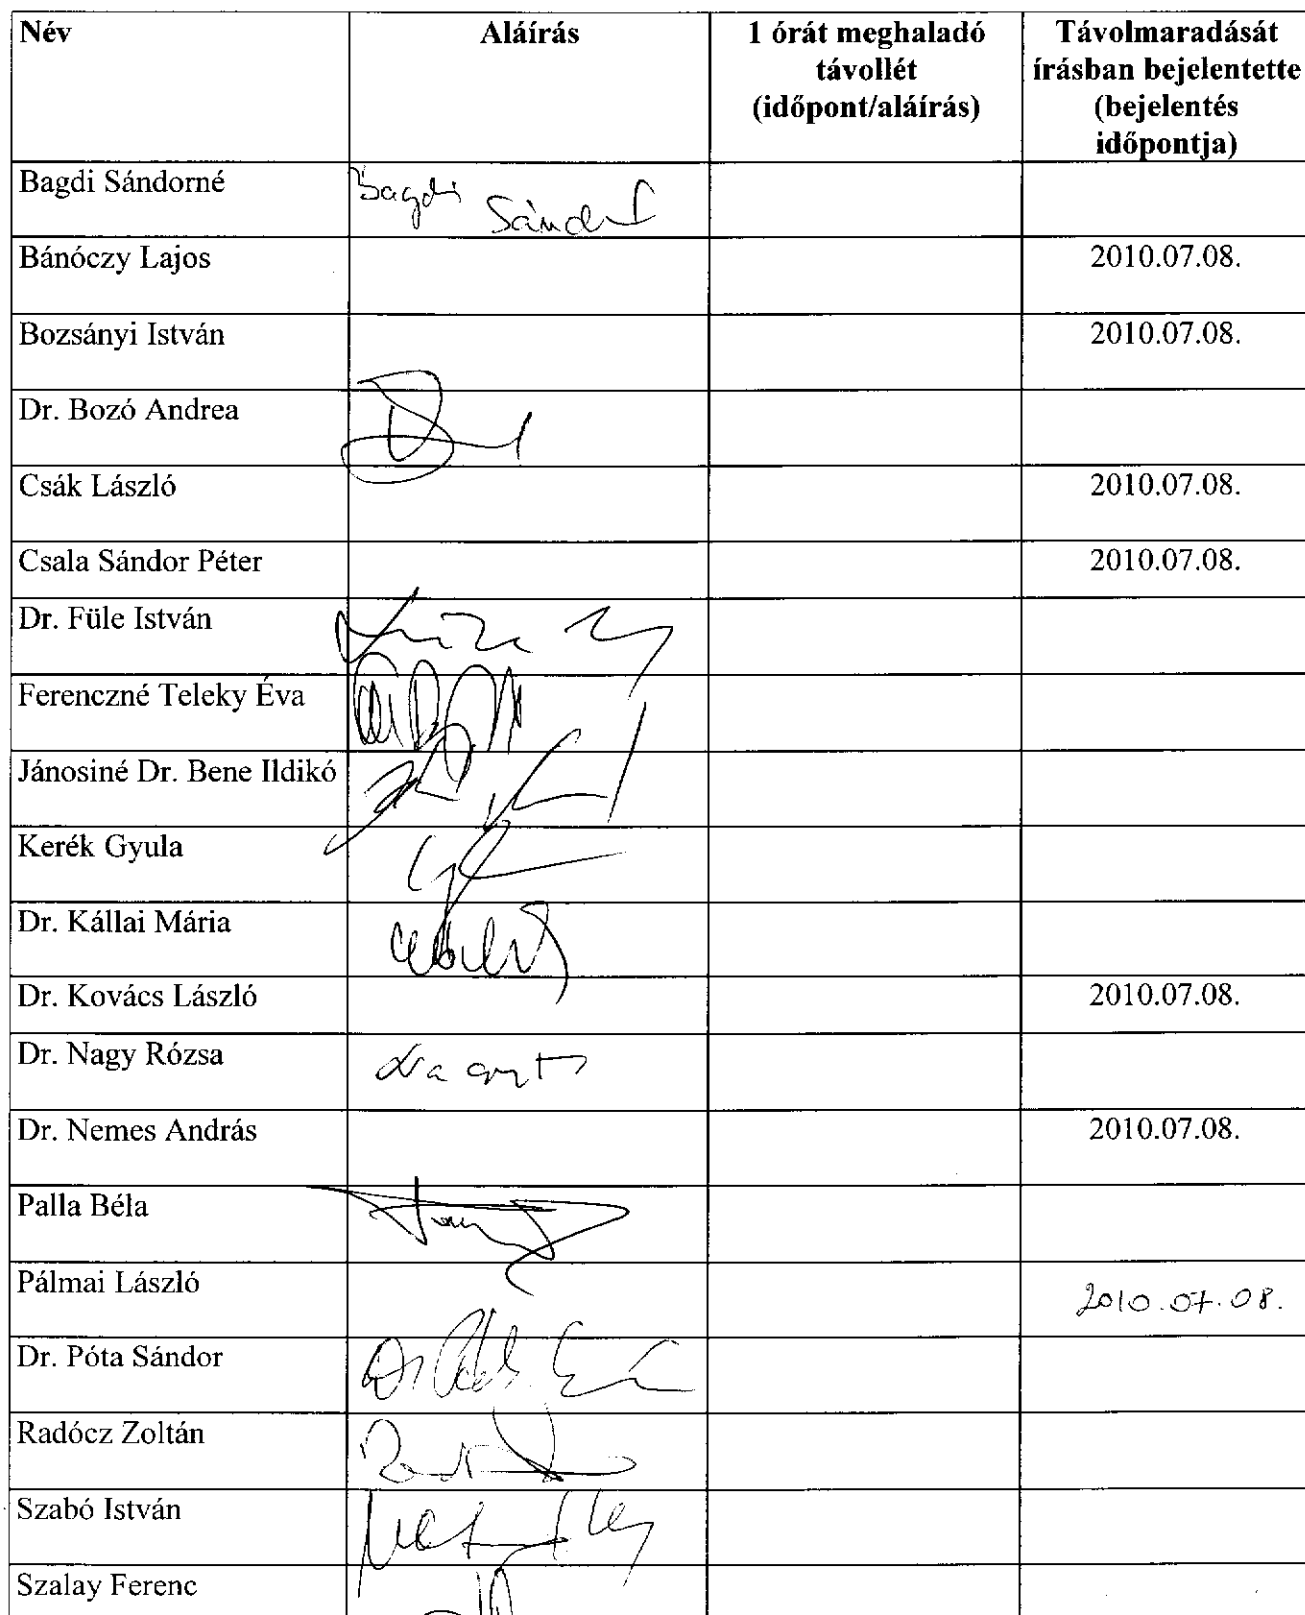 Név Aláírás 1 órát meghaladó Távolmaradását
távollét írásban bejelentette
(időpont/aláírás) (bejelentés
időpontja)
Bagdi Sándorné Bagdi Sándorné
Bánóczy Lajos 2010.07.08.
Bozsányi István 2010.07.08.
Dr. Bozó Andrea
Csák László 2010.07.08.
Csala Sándor Péter 2010.07.08.
Dr. Füle István
Ferenczné Teleky Éva
Jánosiné Dr. Bene Ildikó
Kerék Gyula
Dr. Kállai Mária
Dr. Kovács László 2010.07.08.
Dr. Nagy Rózsa
Dr. Nemes András 2010.07.08.
Palla Béla
Pálmai László 2010.07.08.
Dr. Póta Sándor
Radócz Zoltán
Szabó István
Szalay Ferenc